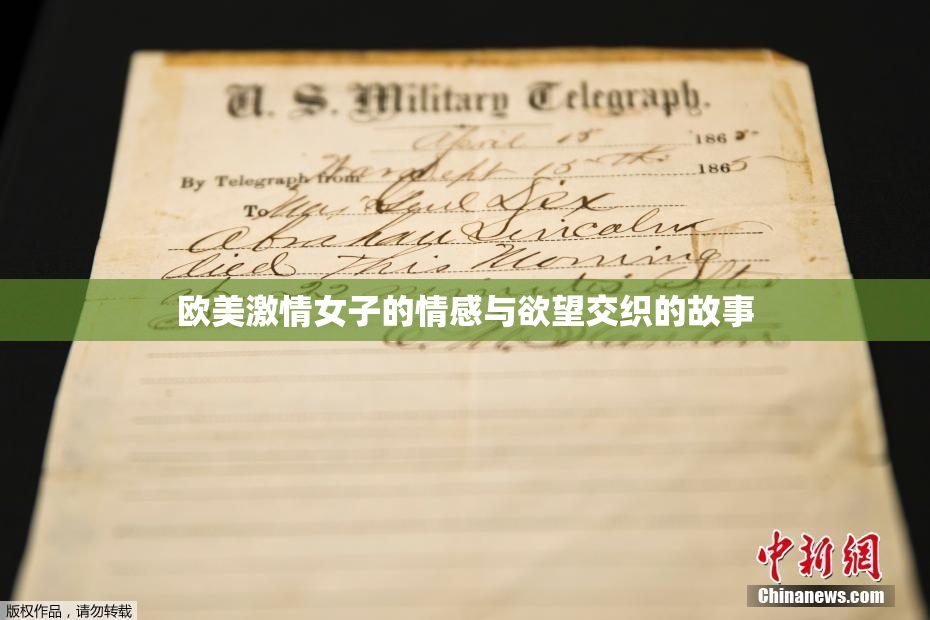 U. S. Military Telegraph.
April 15 1865
By Telegraph from War Dept 15th 1865
To Maj Genl Dix
Abraham Lincoln
died This Morning
22 minutes after
欧美激情女子的情感与欲望交织的故事
E. M. Stanton
中新網
Chinanews.com
版权作品，请勿转载